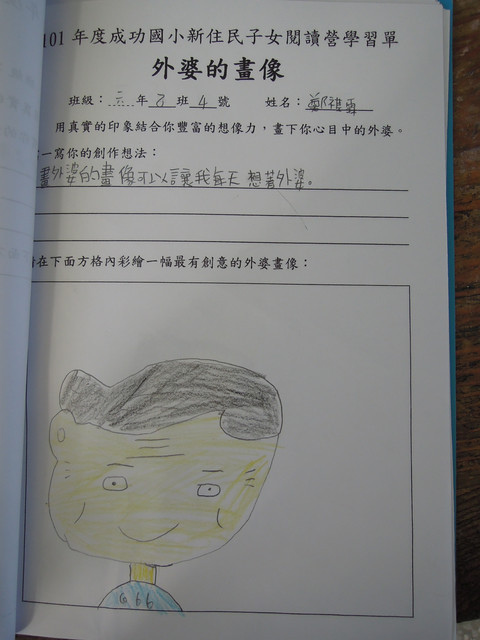 101 年度成功國小新住民子女閱讀營學習單
外婆的畫像
班級：六 年 8 班 4 號 姓名：鄭祺霖
用真實的印象結合你豐富的想像力，畫下你心目中的外婆。
一寫你的創作想法：
畫外婆的畫像可以讓我每天想著外婆。
在下面方格內彩繪一幅最有創意的外婆畫像：
G66